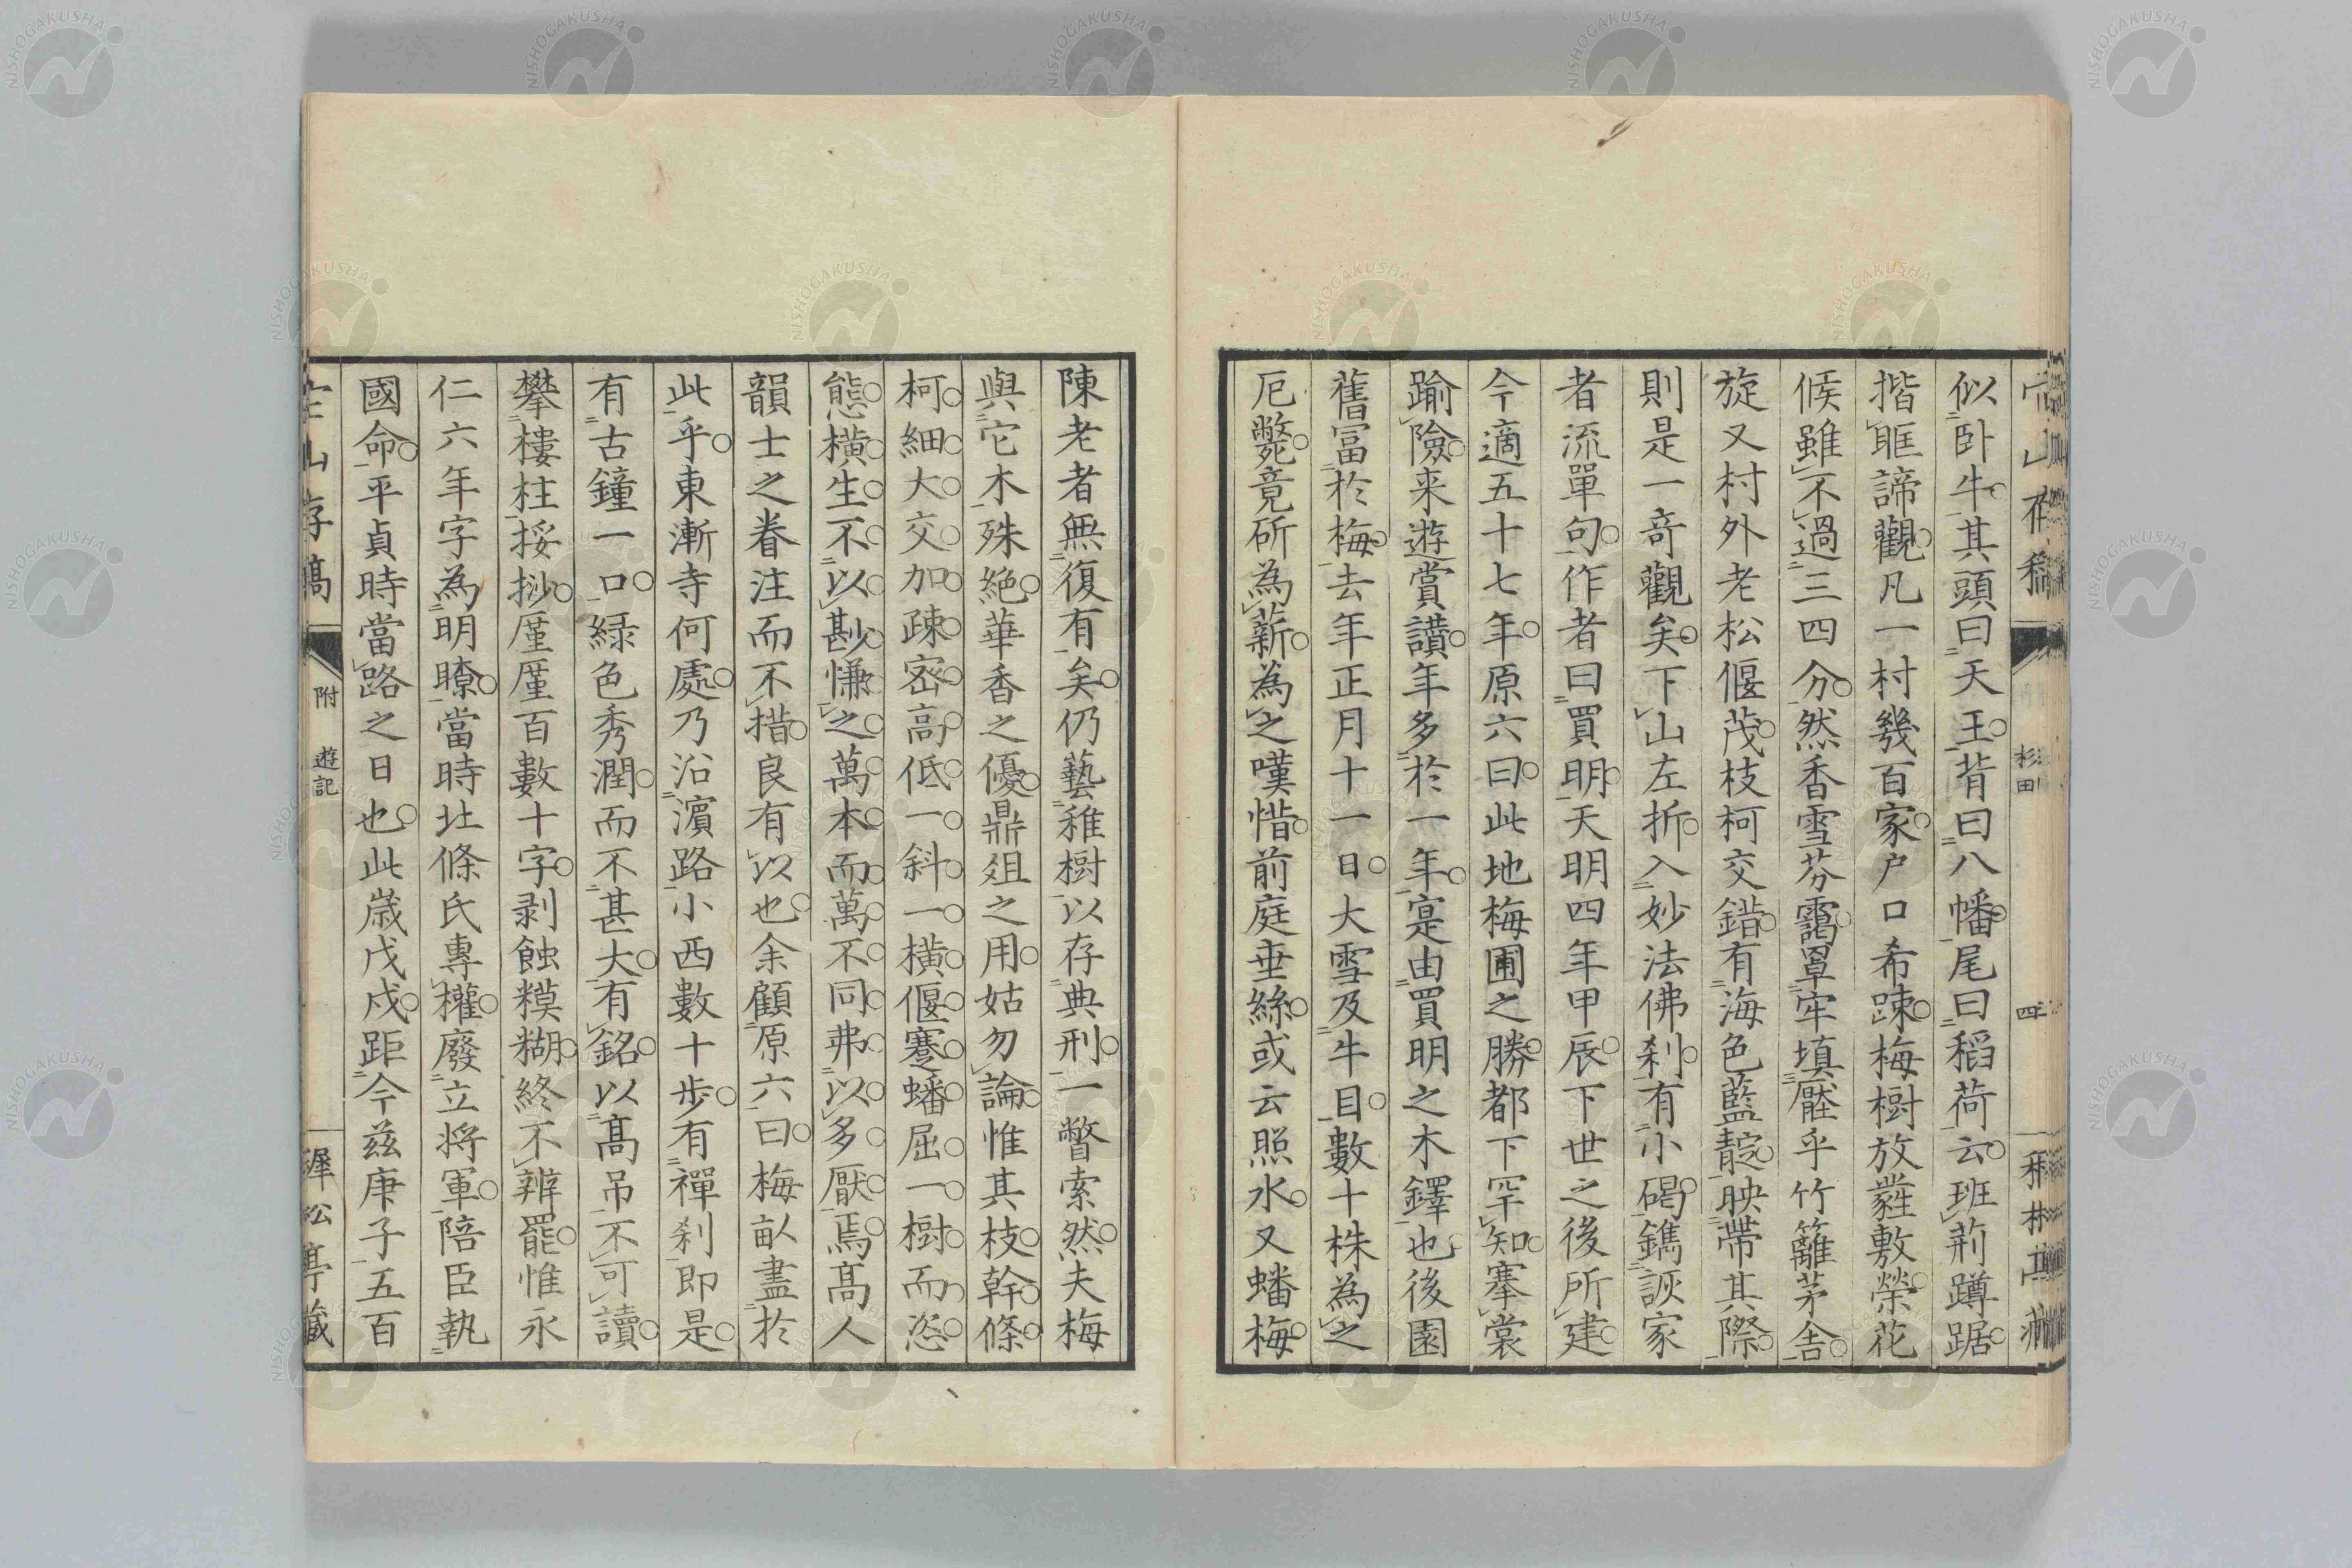 似臥牛其頭曰天王背曰八幡尾曰稻荷云班荊蹲踞
揩眶諦觀凡一村幾百家戸口希踈梅樹放蕤敷榮花
候雖不過三四分然香雪芬靄罩牢填壓乎竹籬茅舎
旋又村外老松偃茂枝柯交錯有海色藍靛映帶其際
則是一奇觀矣下山左折入妙法佛刹有小碣鐫詼家
者流單句作者曰買明天明四年甲辰下世之後所建
今適五十七年原六曰此地梅圃之勝都下罕知搴裳
踰險来遊賞讃年多於一年寔由買明之木鐸也後園
舊冨於梅去年正月十一日大雪及牛目數十株為之
厄斃竟斫為薪為之嘆惜前庭垂絲或云照水又蟠梅
陳老者無復有矣仍藝稚樹以存典刑一瞥索然夫梅
與它木殊絶華香之優鼎俎之用姑勿論惟其枝幹條
柯細大交加疎密高低一斜一横偃蹇蟠屈一樹而恣
態横生不以尠慊之萬本而萬不同弗以多厭焉髙人
韻士之眷注而不措良有以也余顧原六曰梅畝盡於
此乎東漸寺何處乃沿濵路小西數十歩有禪刹即是
有古鐘一口緑色秀潤而不甚大有銘以髙吊不可讀
攀樓柱挼挱厪厪百數十字剥蝕糢糊終不辨罷惟永
仁六年字為明瞭當時北條氏專權廢立将軍陪臣執
國命平貞時當路之日也此歳戊戌距今茲庚子五百
附 遊記
杉田
四